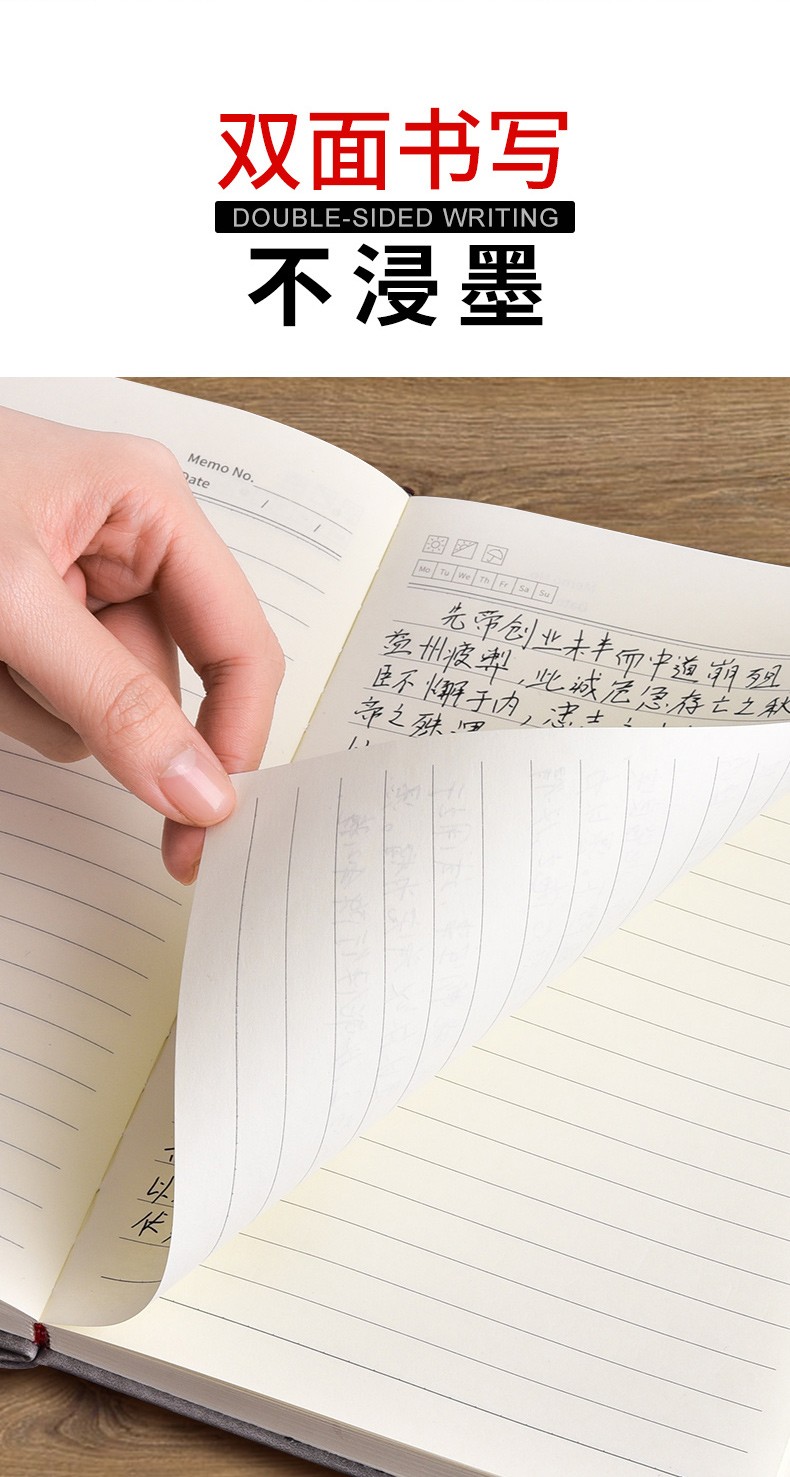 双面书写
DOUBLE-SIDED WRITING
不浸墨
Memo No.
Date / /
Mo Tu We Th Fr Sa Su
先帝创业未半而中道崩殂
益州疲弊,此诚危急存亡之秋
臣不懈于内,忠志之
帝之殊遇
以